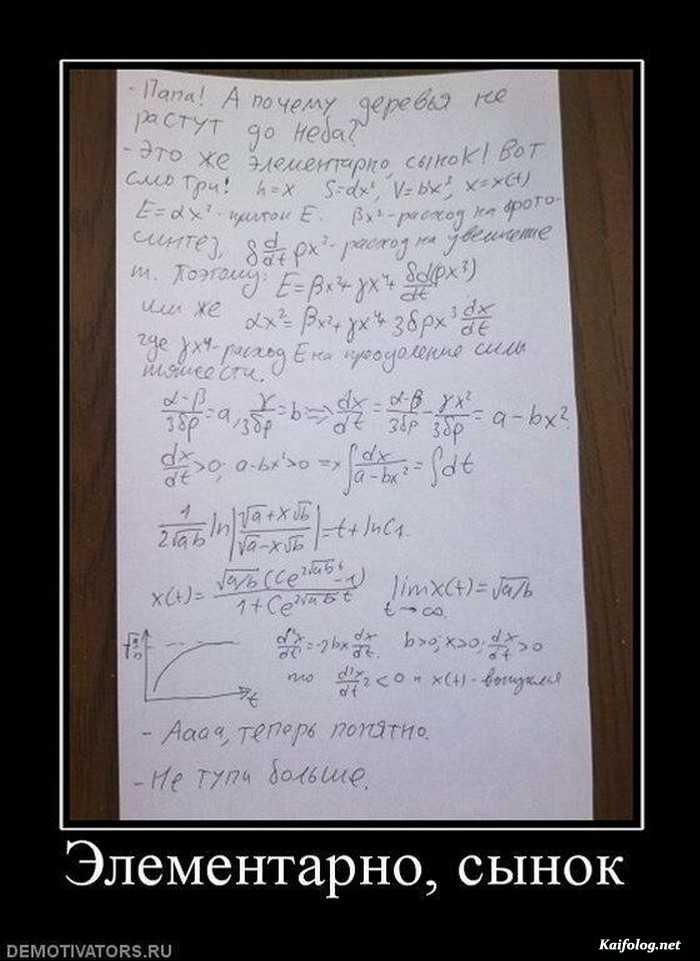 - Папа! А почему деревья не
растут до неба?
- Это же элементарно, сынок! Вот
смотри! h=x S=dx², V=bx³, x=x(t)
E=αx²-приток E. βx²-расход на фото-
синтез, δ d/dt ρx³-расход на увеличение
m. Поэтому: E=βx²+γx⁴+δd(ρx³)/dt
или же αx²=βx²+γx⁴+3δρx³ dx/dt
где γx⁴-расход E на преодоление силы
тяжести.
α-β/3δρ=a, γ/3δρ=b => dx/dt=α-β/3δρ-γx²/3δρ=a-bx².
dx/dt>0; a-bx²>0 => ∫dx/a-bx²=∫dt
1/2√ab ln|√a+x√b/√a-x√b|=t+lnC₁.
x(t)=√a/b(Ce^2√ab t-1)/1+Ce^2√ab t lim x(t)=√a/b
t→∞
√a/b t
d²x/dt²=-2bx dx/dt. b>0; x>0; dx/dt>0
то d²x/dt²<0 и x(t)-выпуклая
- Аааа, теперь понятно.
- Не тупи больше.
Элементарно, сынок
DEMOTIVATORS.RU
Kaifolog.net